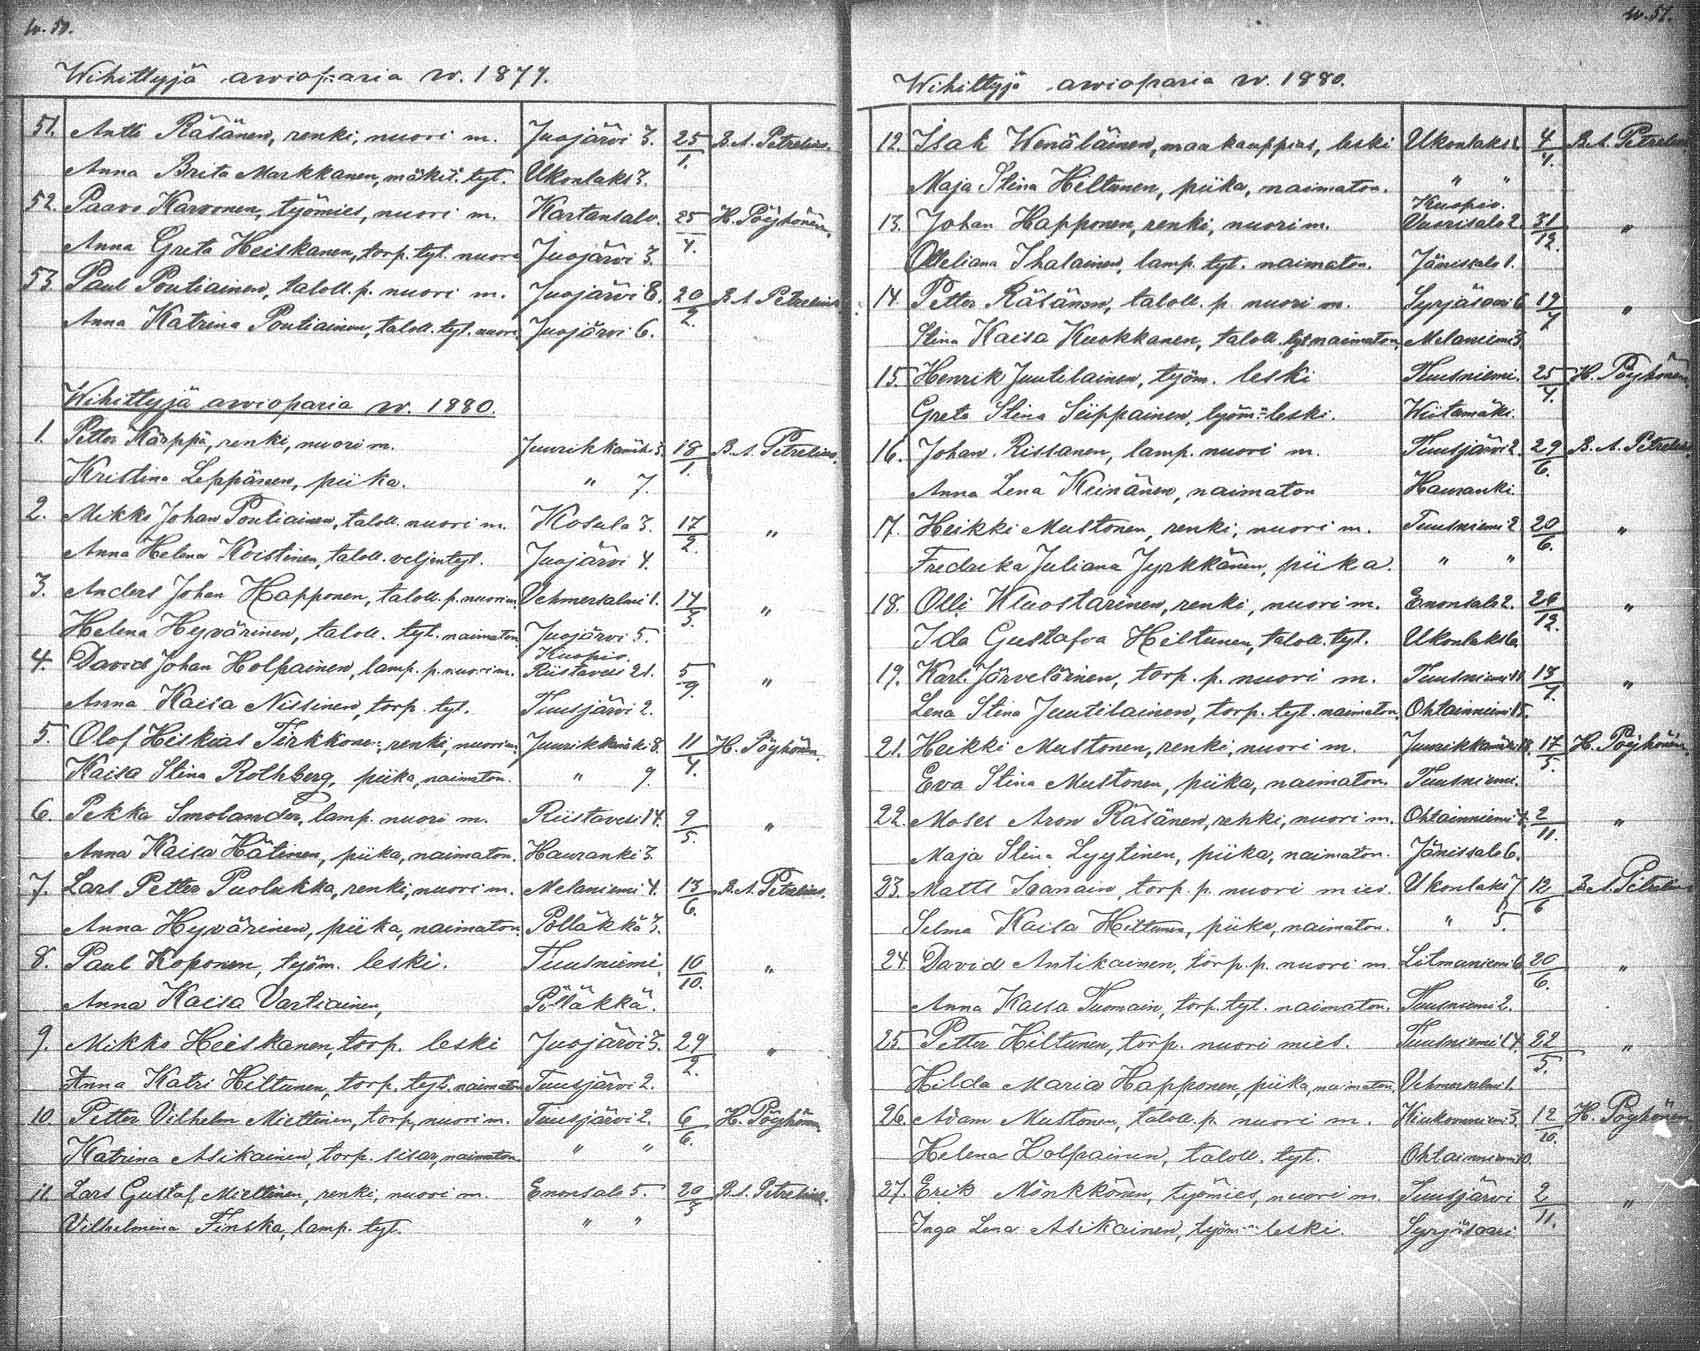 w. 50.
Wihittyjä awioparia w. 1879.
51. Antti Räsänen, renki, nuori m. Juojärvi 3. 25/1. B. A. Petrelius.
Anna Brita Markkanen, mäkit. tyt. Ukonlaks 3.
52. Paavo Karvonen, työmies, nuori m. Kartansalo. 25/4. H. Pöyhönen.
Anna Greta Heiskanen, torp. tyt. nuori Juojärvi 3.
53. Paul Poutiainen, taloll. p. nuori m. Juojärvi 8. 20/2. B. A. Petrelius
Anna Katrina Poutiainen, taloll. tyt. nuori Juojärvi 6.
Wihittyjä awioparia w. 1880.
1. Petter Karppi, renki, nuori m. Juurikkamäki 3. 18/1. B. A. Petrelius.
Kristina Leppänen, piika. " 7.
2. Mikko Johan Poutiainen, taloll. nuori m. Kosula 3. 17/2. "
Anna Helena Koistinen, taloll. veljentyt. Juojärvi 4.
3. Anders Johan Happonen, taloll. p. nuori m. Vehmersalmi 1. 17/5. "
Helena Hyvärinen, taloll. tyt. naimaton Juojärvi 5.
4. David Johan Holpainen, lamp. p. nuori m. Kuopio. Riistavesi 21. 5/9. "
Anna Kaisa Nissinen, torp. tyt. Tuusjärvi 2.
5. Olof Hiskias Tirkkonen, renki, nuori m. Juurikkamäki 8. 11/4. H. Pöyhönen.
Kaisa Stina Rothberg, piika, naimaton. " 9.
6. Pekka Smolander, lamp. nuori m. Riistavesi 14. 9/5. "
Anna Kaisa Hätinen, piika, naimaton. Hauranki 3.
7. Lars Petter Puolakka, renki, nuori m. Melaniemi 4. 13/6. B. A. Petrelius.
Anna Hyvärinen, piika, naimaton. Pölläkkä 3.
8. Paul Koponen, työm. leski. Tuusniemi, 10/10. "
Anna Kaisa Vartiainen, Pölläkkä.
9. Mikko Heiskanen, torp. leski Juojärvi 3. 29/2. "
Anna Katri Hiltunen, torp. tyt. naimaton Tuusjärvi 2.
10. Petter Vilhelm Miettinen, torp. nuori m. Tuusjärvi 2. 6/6. H. Pöyhönen.
Katrina Asikainen, torp. sisar, naimaton. " "
11. Lars Gustaf Miettinen, renki, nuori m. Enonsalo 5. 20/3 B. A. Petrelius.
Vilhelmina Finska, lamp. tyt. " "
w. 51.
Wihittyjä awioparia w. 1880.
12. Isak Wenäläinen, maakauppias, leski Ukonlaks 4/4. B. A. Petrelius
Maja Stina Hiltunen, piika, naimaton. " "
13. Johan Happonen, renki, nuori m. Kuopio. Vuorisalo 2. 31/12. "
Ihalainen, lamp. tyt. naimaton. Jänissalo 1.
14. Petter Räsänen, taloll. p. nuori m. Syrjäsaari 6. 19/7 "
Stina Kaisa Kuokkanen, taloll. tyt. naimaton. Melaniemi 3.
15. Henrik Juutilainen, työm. leski Tuusniemi. 25/4. H. Pöyhönen
Greta Stina Seippainen, työm. leski. Wiitamäki.
16. Johan Rissanen, lamp. nuori m. Tuusjärvi 2. 29/6. B. A. Petrelius.
Anna Lena Keinänen, naimaton Hauranki.
17. Heikki Mustonen, renki, nuori m. Tuusniemi 2 20/6. "
Fredrika Juliana Jyrkkänen, piika. " "
18. Olli Kluostarinen, renki, nuori m. Enonsalo 2. 26/12. "
Ida Gustafva Hiltunen, taloll. tyt. Ukonlaks 6.
19. Karl Järveläinen, torp. p. nuori m. Tuusniemi 11. 18/7. "
Lena Stina Juutilainen, torp. tyt. naimaton. Ohtainniemi 15.
21. Heikki Mustonen, renki, nuori m. Juurikkamäki 18. 17/5. H. Pöyhönen.
Eva Stina Mustonen, piika, naimaton. Tuusniemi.
22. Moses Aron Räsänen, renki, nuori m. Ohtainniemi 2/11. "
Maja Stina Lyytinen, piika, naimaton. Jänissalo 6.
23. Matts Iaanain, torp. p. nuori mies. Ukonlaks 7 12/6 B. A. Petrelius
Selma Kaisa Hiltunen, piika, naimaton. " 5.
24. David Antikainen, torp. p. nuori m. Litmaniemi 6. 20/6. "
Anna Kaisa Tuomain, torp. tyt. naimaton. Tuusniemi 2.
25. Petter Hiltunen, torp. nuori mies. Tuusniemi 14. 22/5. "
Hilda Maria Happonen, piika, naimaton. Vehmersalmi 1.
26. Adam Mustonen, taloll. p. nuori m. Kiukonniemi 3. 12/10. H. Pöyhönen
Helena Holpainen, taloll. tyt. Ohtainniemi 10.
27. Erik Mönkkönen, työmies, nuori m. Tuusjärvi 2/11. "
Inga Lena Asikainen, työm. leski. Syrjäsaari